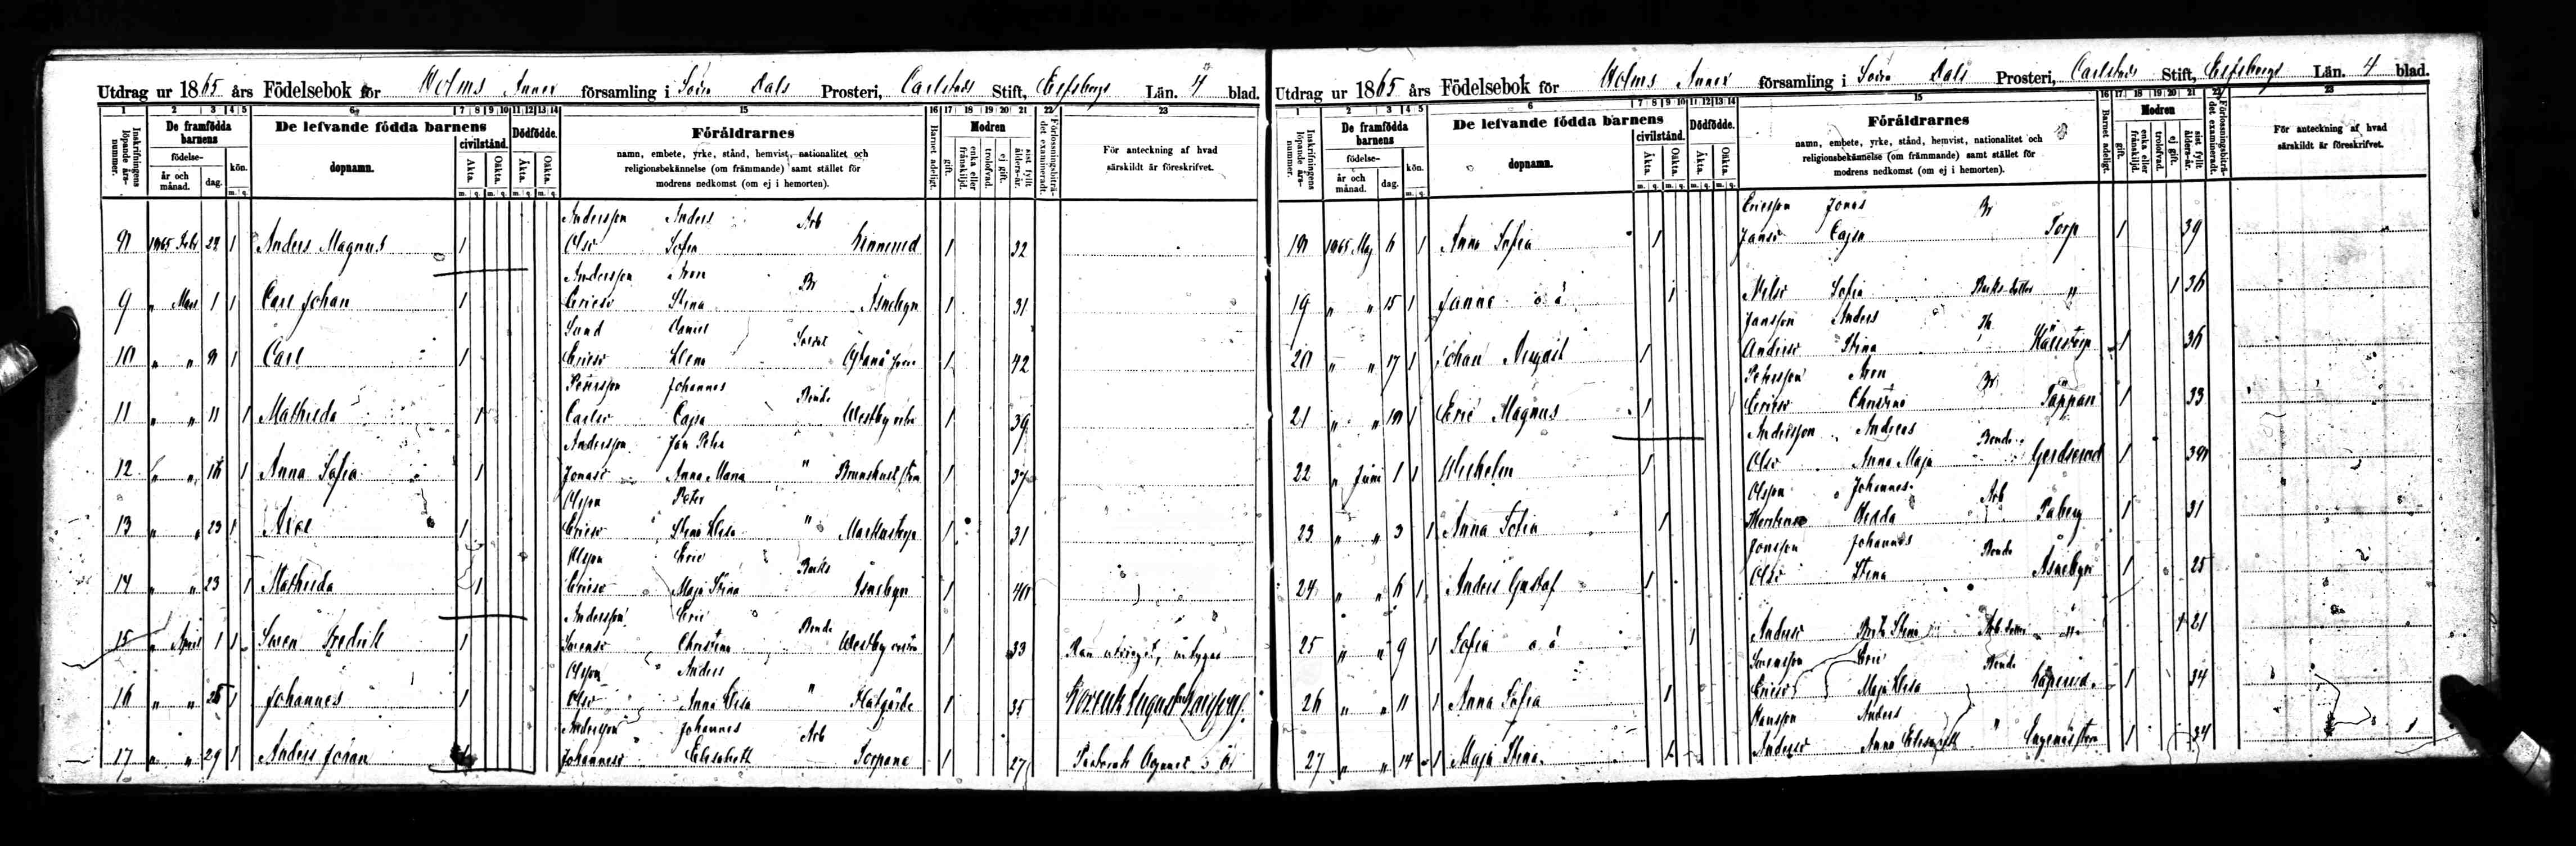 Utdrag ur 1865 års Födelsebok för Holms Annex församling i Södra Dals Prosteri, Carlstads Stift, Elfsborgs Län. 4 blad.
1 2 3 4 5 6 7 8 9 10 11 12 13 14 15 16 17 18 19 20 21 22 23
Inskrifningens löpande års-nummer.
De framfödda barnens
födelse-
år och månad.
dag.
kön.
m. q.
De lefvande födda barnens
dopnamn.
civilstånd.
Äkta.
Oäkta.
Dödfödde.
Äkta.
Oäkta.
Föräldrarnes
namn, embete, yrke, stånd, hemvist, nationalitet och
religionsbekännelse (om främmande) samt stället för
modrens nedkomst (om ej i hemorten).
Barnet adeligt.
Modren
gift.
enka eller frånskild.
trolofvad.
ej gift.
sist fyllt ålders-år.
Förlossningsbiträdet examineradt.
För anteckning af hvad
särskildt är föreskrifvet.
Andersson Anders Arb
8 1865 Febr 22 1 Anders Magnus 1 Olsd Sofia 1 32
Andersson Aron Br
9 " Mars 1 1 Carl Johan 1 Ericsd Stina Åsnebyn 1 31
Sund Daniel Soldat
10 " " 8 1 Carl 1 Ericsd Lena 1 42
Petersson Johannes Bonde
11 " " 11 1 Mathilda 1 Carlsd Cajsa Westby 1 39
Andersson Jan Peter
12 " " 16 1 Anna Sofia 1 Jonasd Anna Maria " 1 37
Olsson Peter
13 " " 23 1 Axel 1 Ericsd Stina Lisa " 1 31
Olsson Eric
14 " " 23 1 Mathilda 1 Ericsd Maja Stina Åsnebyn 1 40
Andersson Eric Bonde
15 " April 1 1 Sven Fredrik 1 Svensd Christina Westby 1 33 Rätt utdraget, intygas
Olsson Anders
16 " " 25 1 Johannes 1 Olsd Anna Lisa " 1 35
Andersson Johannes Arb
17 " " 29 1 Anders Johan Johannesd Elisabeth Torpane 1 27
Utdrag ur 1865 års Födelsebok för Holms Annex församling i Södra Dals Prosteri, Carlstads Stift, Elfsborgs Län. 4 blad.
1 2 3 4 5 6 7 8 9 10 11 12 13 14 15 16 17 18 19 20 21 22 23
Inskrifningens löpande års-nummer.
De framfödda barnens
födelse-
år och månad.
dag.
kön.
m. q.
De lefvande födda barnens
dopnamn.
civilstånd.
Äkta.
Oäkta.
Dödfödde.
Äkta.
Oäkta.
Föräldrarnes
namn, embete, yrke, stånd, hemvist, nationalitet och
religionsbekännelse (om främmande) samt stället för
modrens nedkomst (om ej i hemorten).
Barnet adeligt.
Modren
gift.
enka eller frånskild.
trolofvad.
ej gift.
sist fyllt ålders-år.
Förlossningsbiträdet examineradt.
För anteckning af hvad
särskildt är föreskrifvet.
Ericsson Jonas Br
18 1865 Maj 6 1 Anna Sofia 1 Jansd Cajsa Torp 1 39
19 " " 15 1 Janne o ä 1 Nilsd Sofia " 1 36
Jansson Anders
20 " " 17 1 Johan August 1 Andersd Stina 1 36
Petersson Aron Br
21 " " 18 1 Eric Magnus 1 Ericsd Christina Täppan 1 33
Andersson Andreas Bonde
22 " Juni 1 1 Wilhelm 1 Olsd Anna Maja Gerdserud 1 38
Olsson Johannes Arb
23 " " 3 1 Anna Sofia 1 Hedda 1 31
Jonsson Johannes Bonde
24 " " 6 1 Anders Gustaf 1 Olsd Stina Åsnebyn 1 25
25 " " 9 1 Sofia o ä 1 Andersd Brita Stina " 1 21
Svensson Eric Bonde
26 " " 11 1 Anna Sofia 1 Ericsd Maja Lisa 1 34
Hansson Anders
27 " " 14 1 Maja Stina 1 Andersd Anna Elisabeth " 1 34